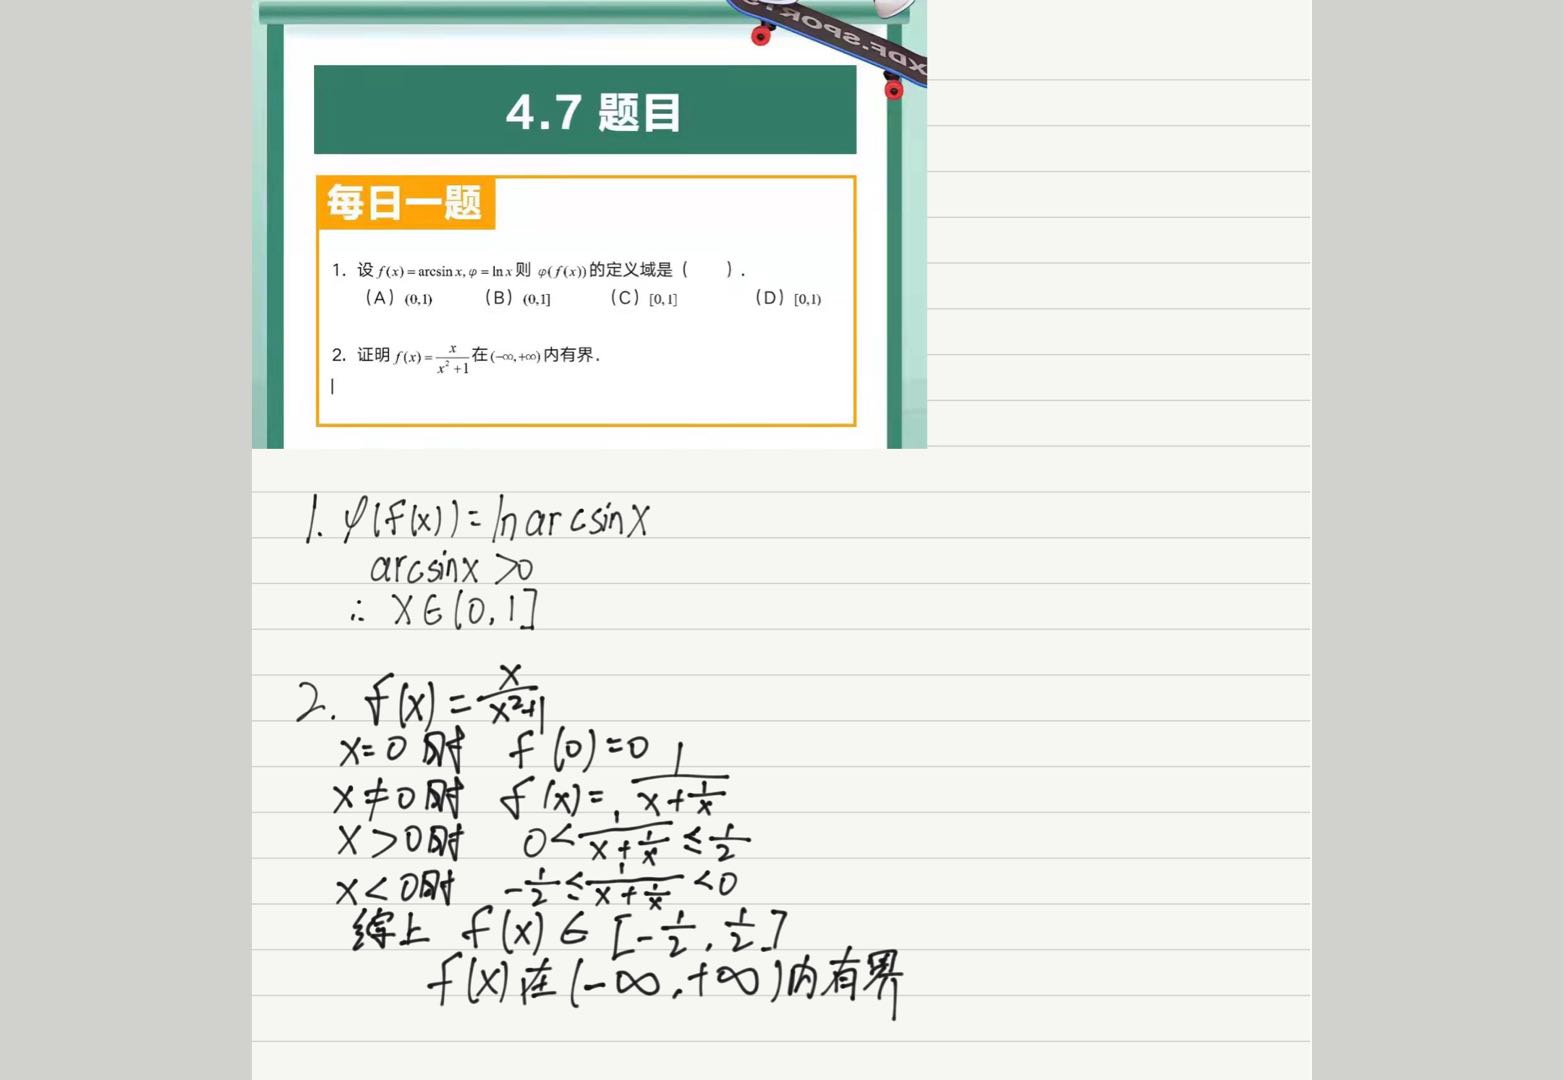 XDF.SPORTS
4.7 题目
每日一题
1. 设 f(x) = arcsin x, φ = ln x 则 φ(f(x)) 的定义域是（　　）.
（A）(0,1)　（B）(0,1]　（C）[0,1]　（D）[0,1)
2. 证明 f(x) = x/(x²+1) 在 (-∞,+∞) 内有界.
1. φ(f(x)) = ln arcsinx
arcsinx >0
∴ x∈(0,1]
2. f(x) = x/(x²+1)
x=0时 f(0)=0
x≠0时 f(x)= 1/(x+1/x)
x>0时 0< 1/(x+1/x) ≤ 1/2
x<0时 -1/2 ≤ 1/(x+1/x) <0
综上 f(x) ∈ [-1/2, 1/2]
f(x)在(-∞,+∞)内有界